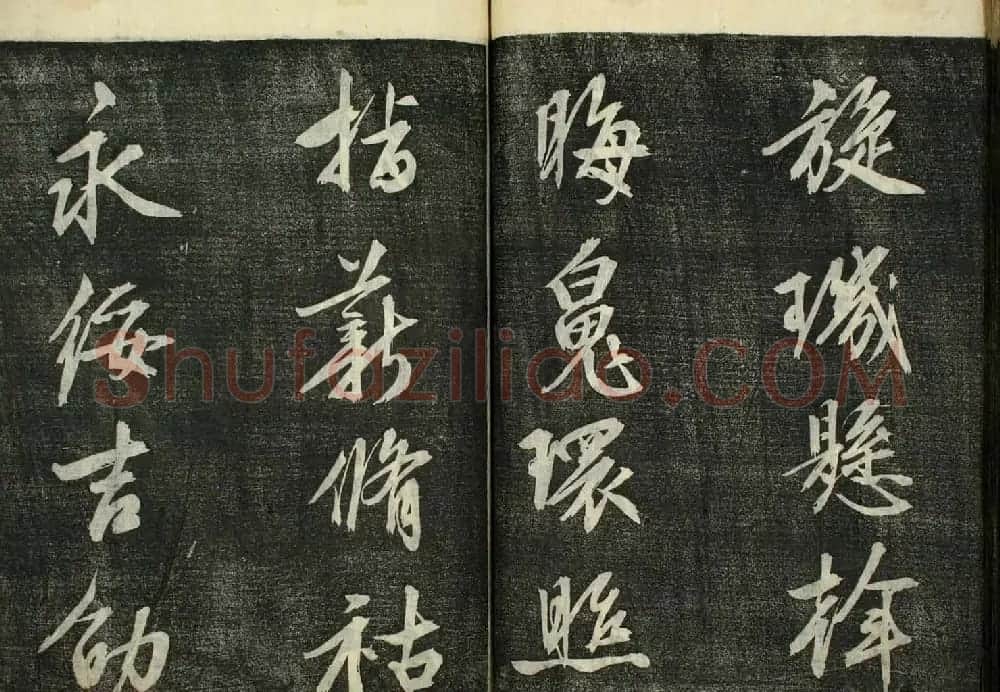 旋璣懸斡
晦魄環照
指薪脩祜
永綏吉劭
Shufaziliao.COM